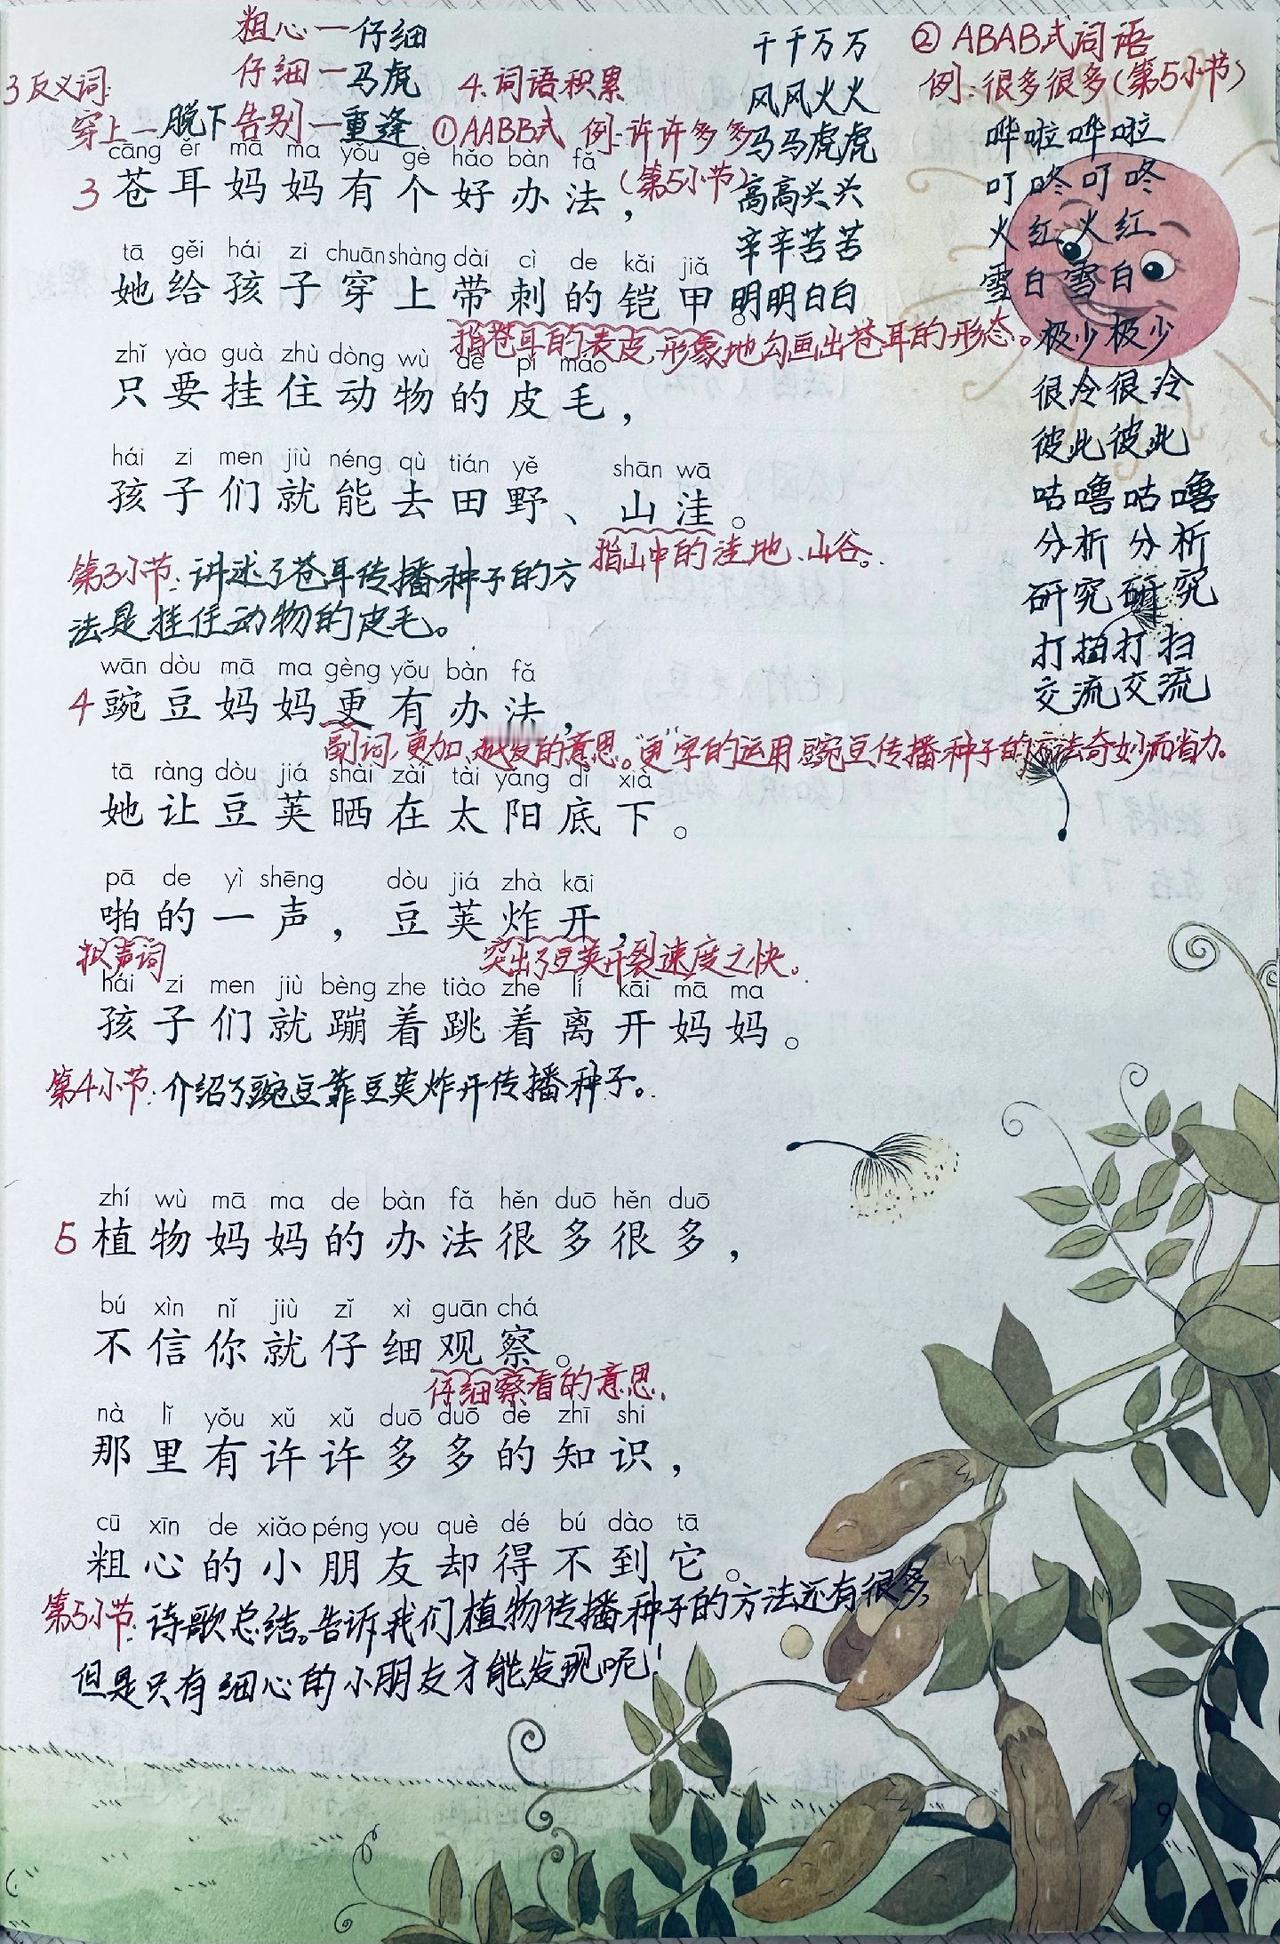 3反义词:
粗心—仔细
仔细—马虎
穿上—脱下 告别—重逢
4.词语积累
①AABB式 例:许许多多
(第5小节)
千千万万
风风火火
马马虎虎
高高兴兴
辛辛苦苦
明明白白
②ABAB式词语
例:很多很多(第5小节)
哗啦哗啦
叮咚叮咚
火红火红
雪白雪白
极少极少
很冷很冷
彼此彼此
咕噜咕噜
分析分析
研究研究
打扫打扫
交流交流
cāng ěr mā ma yǒu gè hǎo bàn fǎ
3 苍耳妈妈有个好办法，
tā gěi hái zi chuān shàng dài cì de kǎi jiǎ
她给孩子穿上带刺的铠甲。
指苍耳的表皮,形象地勾画出苍耳的形态。
zhǐ yào guà zhù dòng wù de pí máo
只要挂住动物的皮毛，
hái zi men jiù néng qù tián yě shān wā
孩子们就能去田野、山洼。
指山中的洼地、山谷。
第3小节:讲述了苍耳传播种子的方
法是挂住动物的皮毛。
wān dòu mā ma gèng yǒu bàn fǎ
4 豌豆妈妈更有办法，
副词,更加,越发的意思。"更"字的运用,豌豆传播种子的方法奇妙而省力。
tā ràng dòu jiá shài zài tài yáng dǐ xià
她让豆荚晒在太阳底下。
pā de yì shēng dòu jiá zhà kāi
啪的一声，豆荚炸开，
拟声词
突出了豆荚开裂速度之快。
hái zi men jiù bèng zhe tiào zhe lí kāi mā ma
孩子们就蹦着跳着离开妈妈。
第4小节:介绍了豌豆靠豆荚炸开传播种子。
zhí wù mā ma de bàn fǎ hěn duō hěn duō
5 植物妈妈的办法很多很多，
bú xìn nǐ jiù zǐ xì guān chá
不信你就仔细观察。
仔细察看的意思.
nà lǐ yǒu xǔ xǔ duō duō de zhī shi
那里有许许多多的知识，
cū xīn de xiǎo péng you què dé bú dào tā
粗心的小朋友却得不到它。
第5小节:诗歌总结。告诉我们植物传播种子的方法还有很多
但是只有细心的小朋友才能发现呢!
9